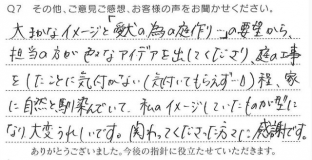 Q7 その他、ご意見ご感想、お客様の声をお聞かせください。
大まかなイメージと「愛犬の為の庭作り…」の要望から、
担当の方が色々なアイデアを出してくださり、庭の工事
をしたことに気付かない(気付いてもらえず…)程、家
に自然と馴染んでいて、私のイメージしていたものが形に
なり大変うれしいです。関わってくださった方々に感謝です。
ありがとうございました。今後の指針に役立たせていただきます。